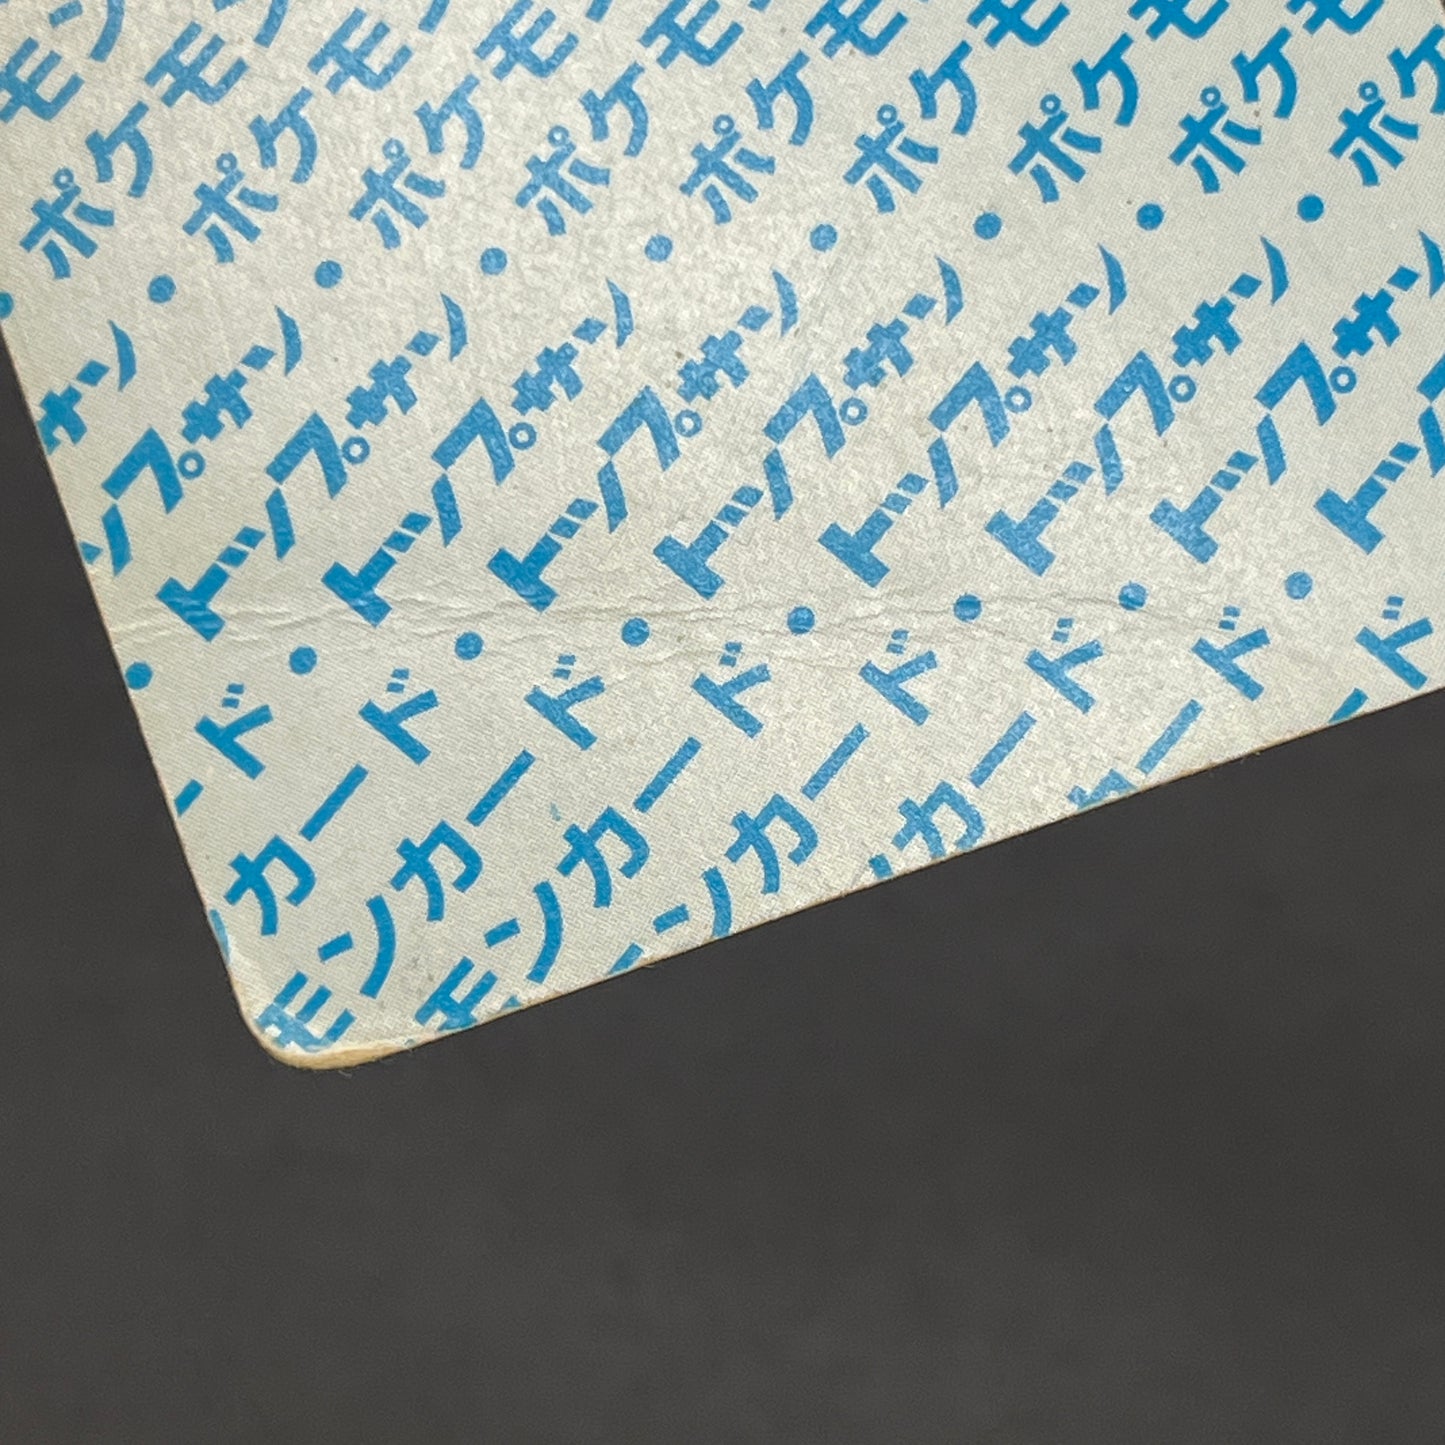 モン
• ポケモン
サン • ポケモン
ップサン • ポケモ
• トップサン • ポケモ
ード • トップサン • ポケモ
カード • トップサン • ポケモ
モンカード • トップサン • ポケモ
モンカード • トップサン • ポケモ
ンカード • トップサン • ポケ
カード • トップサン
ード • トップ
ド